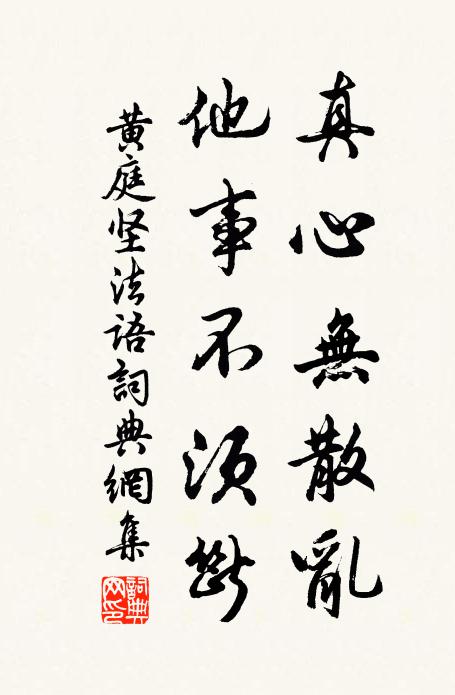 真心無散亂
他事不須斷
黄庭坚法語詞典網集
詞典
网印